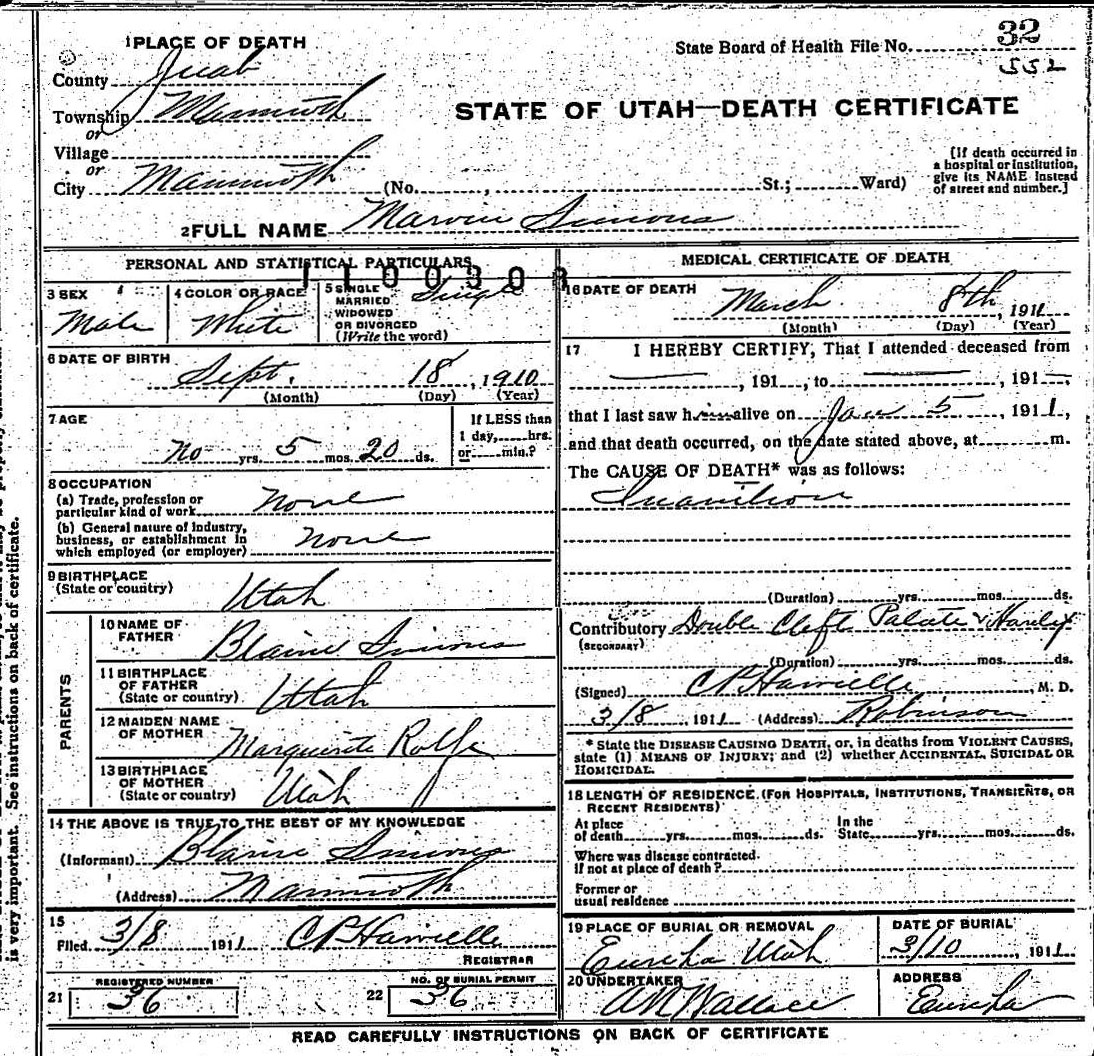 1 PLACE OF DEATH
State Board of Health File No. 32
552
County Juab
Township Mammoth
or
Village
or
City Mammoth (No. , St.; Ward)
STATE OF UTAH—DEATH CERTIFICATE
[If death occurred in
a hospital or institution,
give its NAME instead
of street and number.]
2 FULL NAME Marvin Simons
PERSONAL AND STATISTICAL PARTICULARS
1100308
3 SEX
Male
4 COLOR OR RACE
White
5 SINGLE
MARRIED
WIDOWED
OR DIVORCED
(Write the word)
Single
6 DATE OF BIRTH
Sept. 18, 1910
(Month) (Day) (Year)
7 AGE
no yrs. 5 mos. 20 ds.
If LESS than
1 day, hrs.
or min.?
8 OCCUPATION
(a) Trade, profession or
particular kind of work none
(b) General nature of industry,
business, or establishment in
which employed (or employer) none
9 BIRTHPLACE
(State or country) Utah
PARENTS
10 NAME OF
FATHER Blaine Simons
11 BIRTHPLACE
OF FATHER
(State or country) Utah
12 MAIDEN NAME
OF MOTHER Marguerite Rolfe
13 BIRTHPLACE
OF MOTHER
(State or country) Utah
14 THE ABOVE IS TRUE TO THE BEST OF MY KNOWLEDGE
(Informant) Blaine Simons
(Address) Mammoth
15
Filed 3/8 1911
REGISTRAR
REGISTERED NUMBER
21 36
NO. OF BURIAL PERMIT
22 36
MEDICAL CERTIFICATE OF DEATH
16 DATE OF DEATH
March 8th, 1911
(Month) (Day) (Year)
17 I HEREBY CERTIFY, That I attended deceased from
, 191 , to , 191 ,
that I last saw him alive on Jan 5, 1911,
and that death occurred, on the date stated above, at m.
The CAUSE OF DEATH* was as follows:
Inanition
(Duration) yrs. mos. ds.
Contributory Double Cleft Palate & Harelip
(SECONDARY)
(Duration) yrs. mos. ds.
(Signed) , M. D.
3/8, 1911 (Address) Robinson
* State the DISEASE CAUSING DEATH, or, in deaths from VIOLENT CAUSES,
state (1) MEANS OF INJURY; and (2) whether ACCIDENTAL, SUICIDAL OR
HOMICIDAL.
18 LENGTH OF RESIDENCE (FOR HOSPITALS, INSTITUTIONS, TRANSIENTS, OR
RECENT RESIDENTS)
At place
of death yrs. mos. ds.
In the
State yrs. mos. ds.
Where was disease contracted
if not at place of death?
Former or
usual residence
19 PLACE OF BURIAL OR REMOVAL
Eureka Utah
DATE OF BURIAL
3/10, 1911
20 UNDERTAKER
Wallace
ADDRESS
Eureka
READ CAREFULLY INSTRUCTIONS ON BACK OF CERTIFICATE
is very important. See instructions on back of certificate.